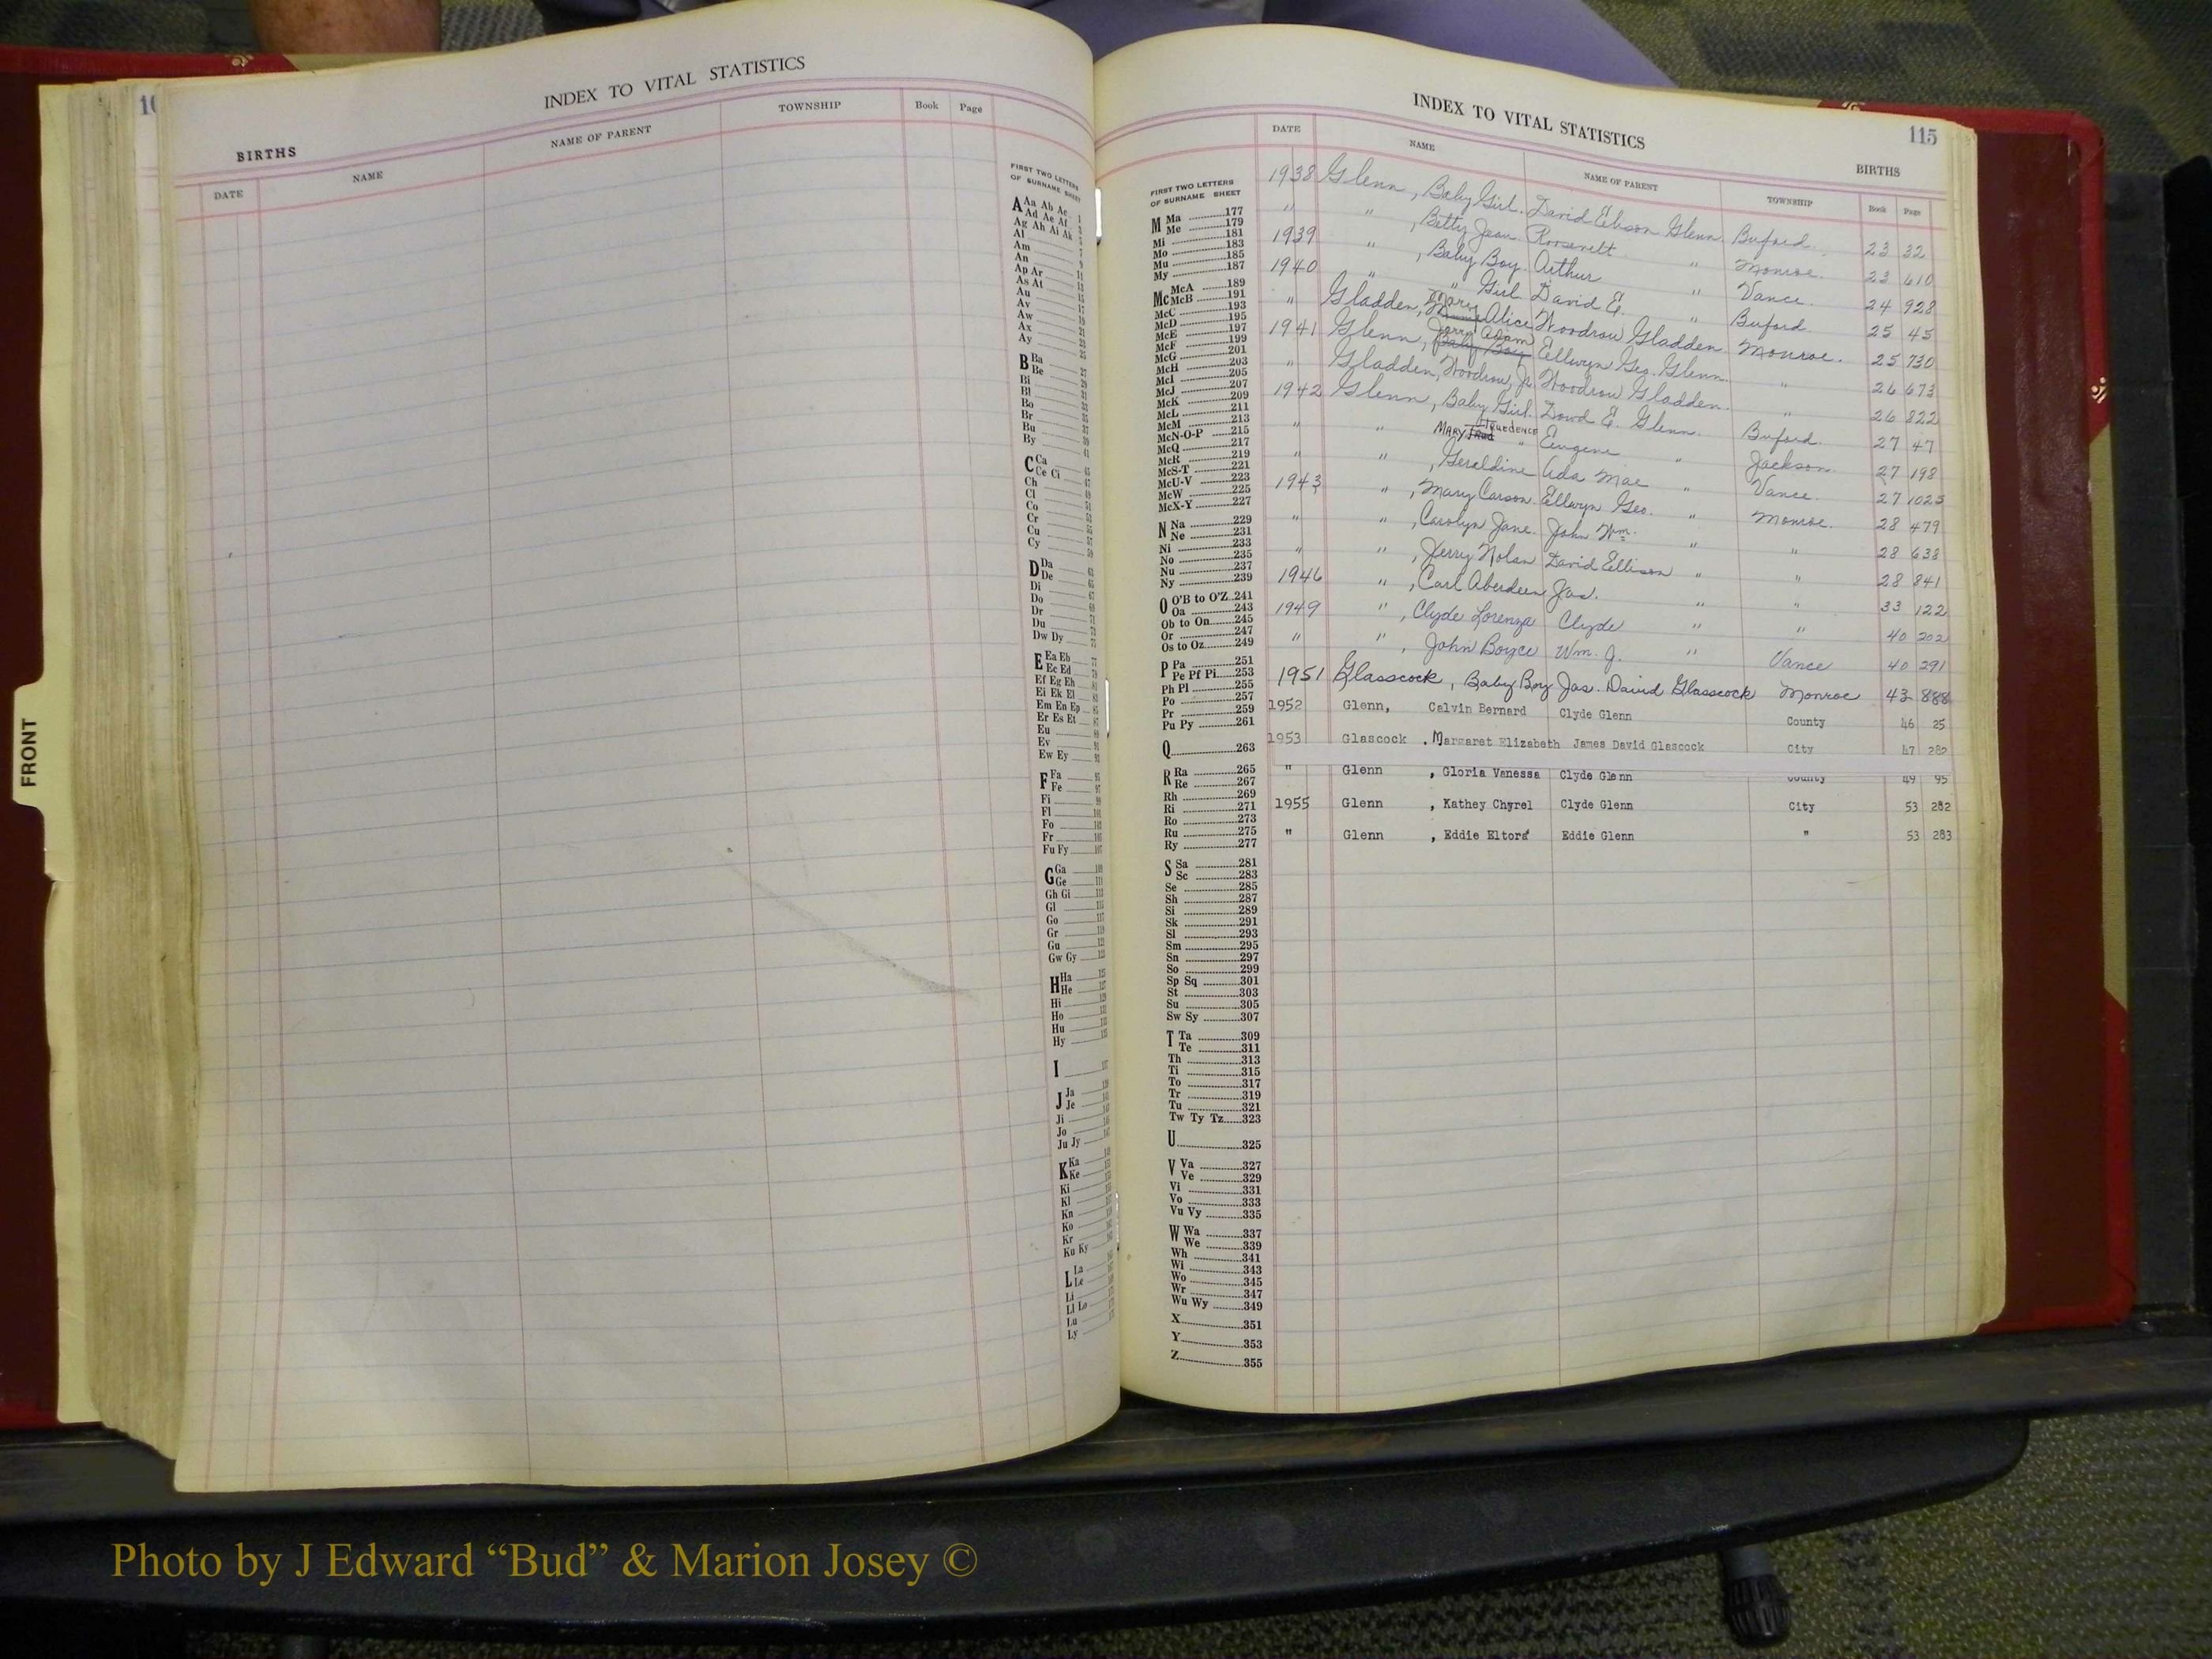 FRONT
10
INDEX TO VITAL STATISTICS
BIRTHS
DATE NAME NAME OF PARENT TOWNSHIP Book Page
FIRST TWO LETTERS
OF SURNAME SHEET
A Aa Ab Ac
Ad Ae Af
Ag Ah Ai Ak
Al
Am
An
Ap Ar
As At
Au
Av
Aw
Ax
Ay
B Ba
Be
Bi
Bl
Bo
Br
Bu
By
C Ca
Ce Ci
Ch
Cl
Co
Cr
Cu
Cy
D Da
De
Di
Do
Dr
Du
Dw Dy
E Ea Eb
Ec Ed
Ef Eg Eh
Ei Ek El
Em En Ep
Er Es Et
Eu
Ev
Ew Ey
F Fa
Fe
Fi
Fl
Fo
Fr
Fu Fy
G Ga
Ge
Gh Gi
Gl
Go
Gr
Gu
Gw Gy
H Ha
He
Hi
Ho
Hu
Hy
I
J Ja
Je
Ji
Jo
Ju Jy
K Ka
Ke
Ki
Kl
Kn
Ko
Kr
Ku Ky
L La
Le
Li
Ll Lo
Lu
Ly
INDEX TO VITAL STATISTICS 115
BIRTHS
DATE NAME NAME OF PARENT TOWNSHIP Book Page
FIRST TWO LETTERS
OF SURNAME SHEET
M Ma 177
Me 179
Mi 181
Mo 183
Mu 185
My 187
Mc McA 189
McB 191
McC 193
McD 195
McE 197
McF 199
McG 201
McH 203
McI 205
McJ 207
McK 209
McL 211
McM 213
McN-O-P 215
McQ 217
McR 219
McS-T 221
McU-V 223
McW 225
McX-Y 227
N Na 229
Ne 231
Ni 233
No 235
Nu 237
Ny 239
O O'B to O'Z 241
Oa 243
Ob to On 245
Or 247
Os to Oz 249
P Pa 251
Pe Pf Pi 253
Ph Pl 255
Po 257
Pr 259
Pu Py 261
Q 263
R Ra 265
Re 267
Rh 269
Ri 271
Ro 273
Ru 275
Ry 277
S Sa 281
Sc 283
Se 285
Sh 287
Si 289
Sk 291
Sl 293
Sm 295
Sn 297
So 299
Sp Sq 301
St 303
Su 305
Sw Sy 307
T Ta 309
Te 311
Th 313
Ti 315
To 317
Tr 319
Tu 321
Tw Ty Tz 323
U 325
V Va 327
Ve 329
Vi 331
Vo 333
Vu Vy 335
W Wa 337
We 339
Wh 341
Wi 343
Wo 345
Wr 347
Wu Wy 349
X 351
Y 353
Z 355
1938 Glenn, Baby Girl. David Ellison Glenn. Buford. 23 32
" " , Betty Jean. Roosevelt " Monroe. 23 610
1939 " , Baby Boy. Arthur " Vance. 24 928
1940 " " Girl. David E. " Buford. 25 45
" Gladden, Mary Alice Woodrow Gladden. Monroe. 25 730
1941 Glenn, Jerry Adam Baby Boy Ellwyn Geo. Glenn. " 26 673
" Gladden, Woodrow, Jr. Woodrow Gladden. " 26 822
1942 Glenn, Baby Girl. Dowd E. Glenn. Buford. 27 47
" " MARY " Eugene " Jackson. 27 198
" " , Geraldine Ada Mae " Vance. 27 1025
1943 " , Mary Carson. Ellwyn Geo. " Monroe. 28 479
" " , Carolyn Jane. John Wm. " " 28 638
" " , Jerry Nolan David Ellison " " 28 841
1946 " , Carl Aberdeen Jas. " " 33 122
1949 " , Clyde Lorenza Clyde " " 40 202
" " , John Boyce Wm. J. " Vance 40 291
1951 Glasscock, Baby Boy Jas. David Glasscock Monroe 43 888
1952 Glenn, Calvin Bernard Clyde Glenn County 46 25
1953 Glascock , Margaret Elizabeth James David Glascock City 47 282
" Glenn , Gloria Vanessa Clyde Glenn County 49 95
1955 Glenn , Kathey Chyrel Clyde Glenn City 53 282
" Glenn , Eddie Eltora Eddie Glenn " 53 283
Photo by J Edward “Bud” & Marion Josey ©